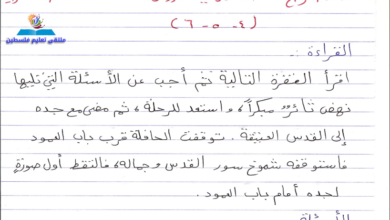 (٤-٥-٦)
ملتقى تعليم فلسطين
القراءة :-
اقرأ الفقرة التالية ثم أجب عن الأسئلة التي تليها
نهض ثائر مبكراً، واستعد للرحلة، ثم مضى مع جده
إلى القدس العتيقة. توقفت الحافلة قرب باب العمود
فاستوقفه شموخ سور القدس وجماله، فالتقط أول صورة
لجده أمام باب العمود.